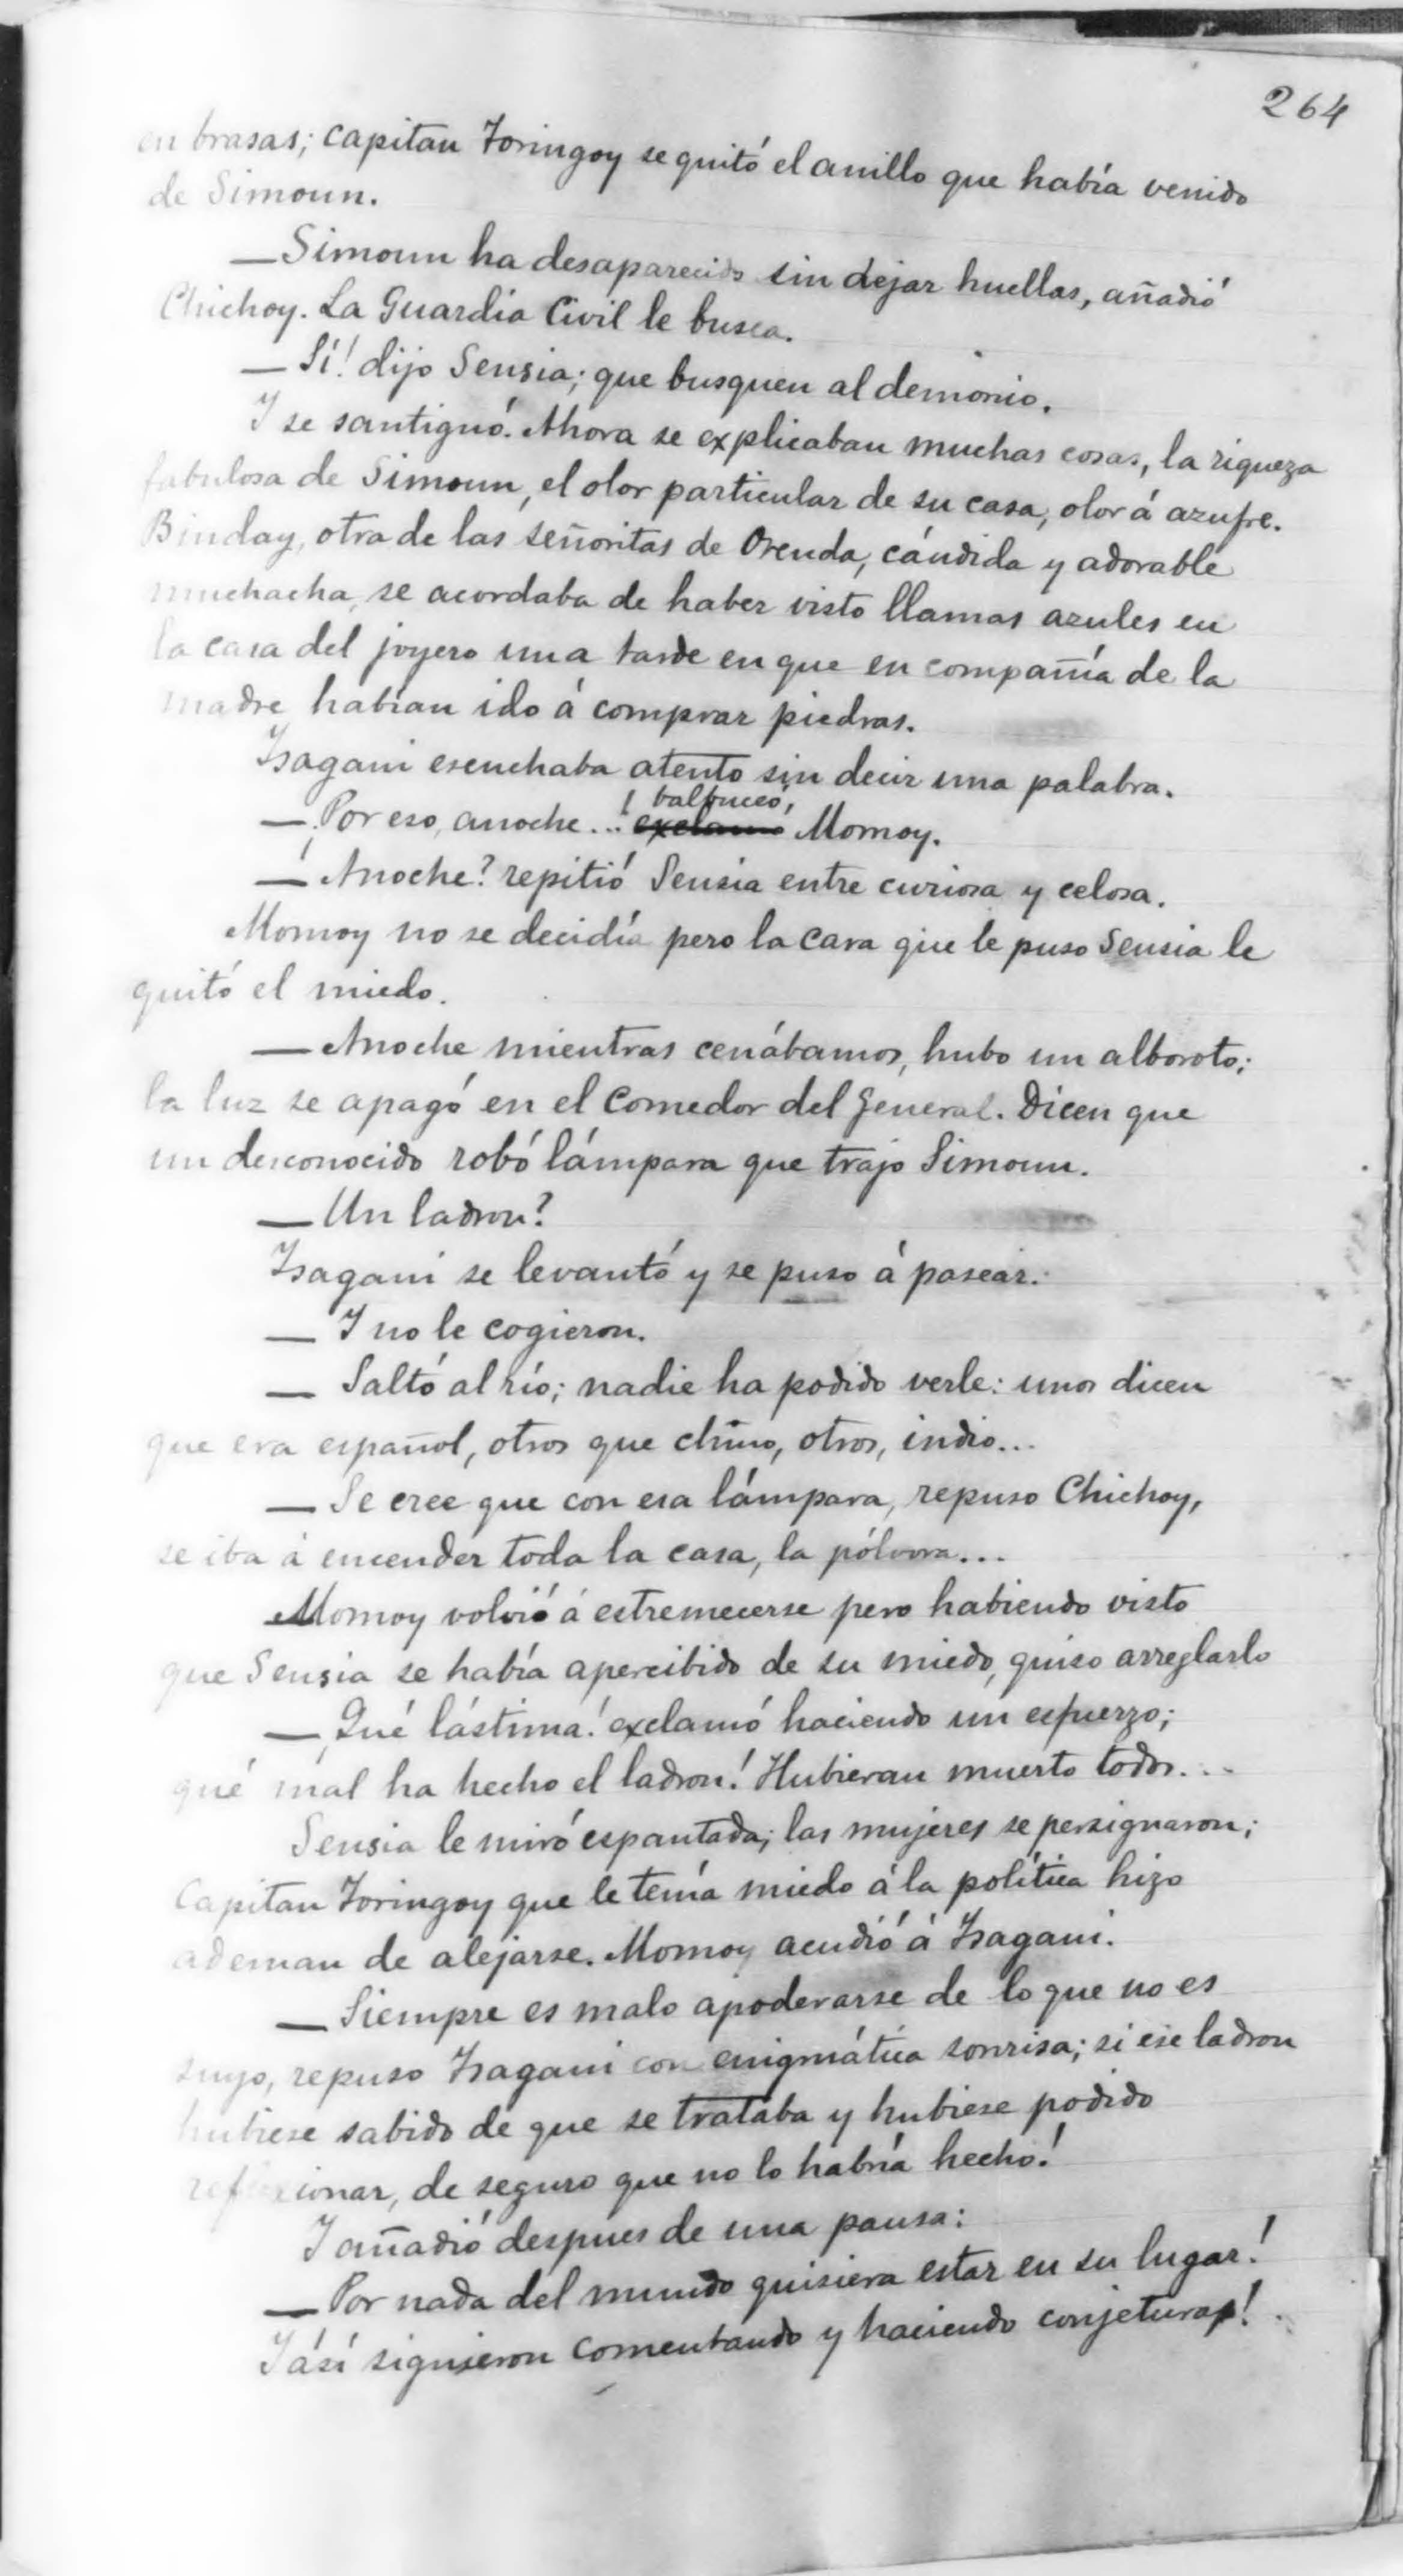 264
en brasas; capitan Toringoy se quitó el anillo que había venido
de Simoun.
— Simoun ha desaparecido sin dejar huellas, añadió
Chichoy. La Guardia Civil le busca.
— Sí! dijo Sensia; que busquen al demonio.
Y se santiguó. Ahora se explicaban muchas cosas, la riqueza
fabulosa de Simoun, el olor particular de su casa, olor á azufre.
Binday, otra de las señoritas de Orenda, cándida y adorable
muchacha, se acordaba de haber visto llamas azules en
la casa del joyero una tarde en que en compañía de la
madre habian ido á comprar piedras.
Isagani escuchaba atento sin decir una palabra.
— ¡Por eso, anoche...! balbuceó, exclamó Momoy.
— Anoche? repitió Sensia entre curiosa y celosa.
Momoy no se decidía pero la cara que le puso Sensia le
quitó el miedo.
— Anoche mientras cenábamos, hubo un alboroto;
la luz se apagó en el comedor del General. Dicen que
un desconocido robó lámpara que trajo Simoun.
— Un ladron?
Isagani se levantó y se puso á pasear.
— Y no le cogieron.
— Saltó al río; nadie ha podido verle: unos dicen
que era español, otros que chino, otros, indio...
— Se cree que con esa lámpara, repuso Chichoy,
se iba á encender toda la casa, la pólvora...
Momoy volvió á estremecerse pero habiendo visto
que Sensia se había apercibido de su miedo, quiso arreglarlo
— ¡Qué lástima! exclamó haciendo un esfuerzo;
qué mal ha hecho el ladron! Hubieran muerto todos...
Sensia le miró espantada; las mujeres se persignaron;
Capitan Toringoy que le tenía miedo á la política hizo
ademan de alejarse. Momoy acudió á Isagani.
— Siempre es malo apoderarse de lo que no es
suyo, repuso Isagani con enigmática sonrisa; si ese ladron
hubiese sabido de que se trataba y hubiese podido
reflexionar, de seguro que no lo habría hecho!
Y añadió despues de una pausa:
— Por nada del mundo quisiera estar en su lugar!
Y así siguieron comentando y haciendo conjeturas!